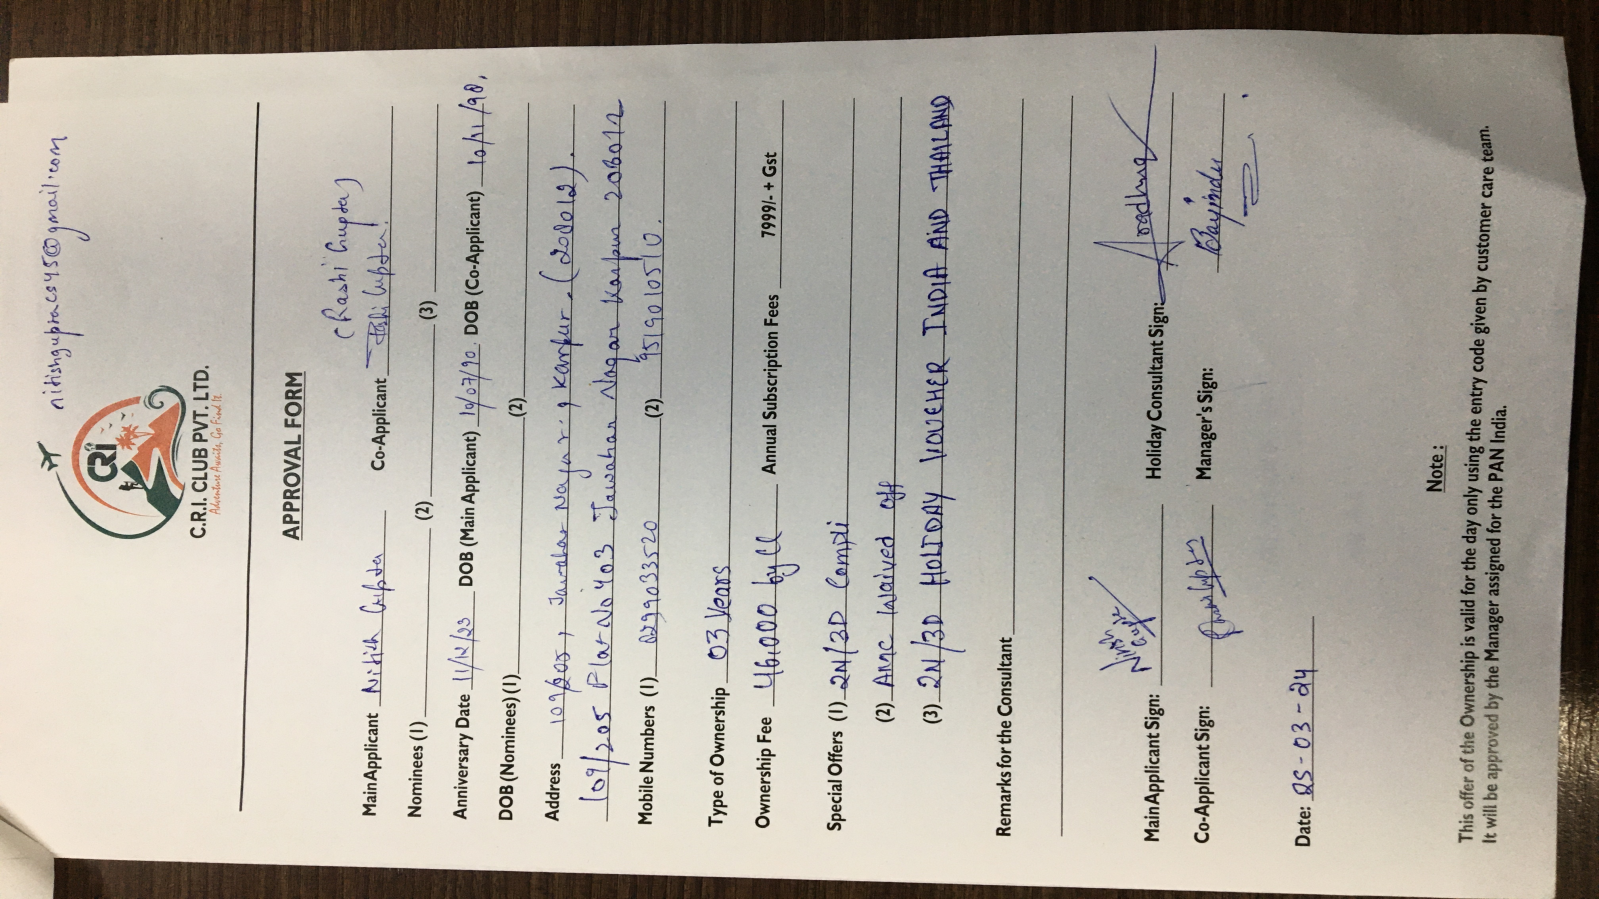 nitishgupracs45@gmail.com
CRi
C.R.I. CLUB PVT. LTD.
Adventure Awaits, Go Find It.
APPROVAL FORM
(Rashi Gupta)
Main Applicant Nitish Gupta Co-Applicant Rashi Gupta
Nominees (1) (2) (3)
Anniversary Date 11/12/23 DOB (Main Applicant) 10/07/90 DOB (Co-Applicant) 10/11/90,
DOB (Nominees) (1) (2)
Address 109/205, Jawahar Nagar, Kanpur. (208012).
109/205 Flat No 403 Jawahar Nagar Kanpur 208012
Mobile Numbers (1) 8299033520 (2) 9519010510.
Type of Ownership 03 Years
Ownership Fee 46,000 by CC Annual Subscription Fees 7999/- + Gst
Special Offers (1) 2N/3D Compli
(2) AMC Waived off
(3) 2N/3D HOLIDAY VOUCHER INDIA AND THAILAND
Remarks for the Consultant
Main Applicant Sign: Nitish Gupta Holiday Consultant Sign: Aradhna
Co-Applicant Sign: Manager's Sign:
Date: 25-03-24
Note :
This offer of the Ownership is valid for the day only using the entry code given by customer care team.
It will be approved by the Manager assigned for the PAN India.